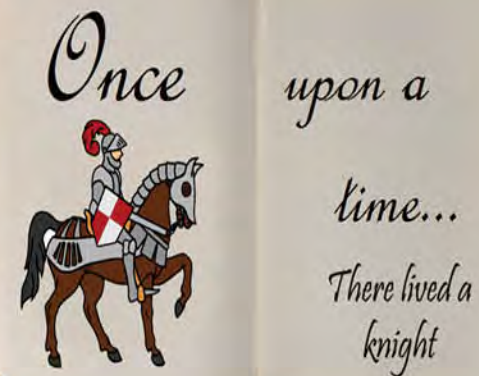 Once upon a
time...
There lived a
knight